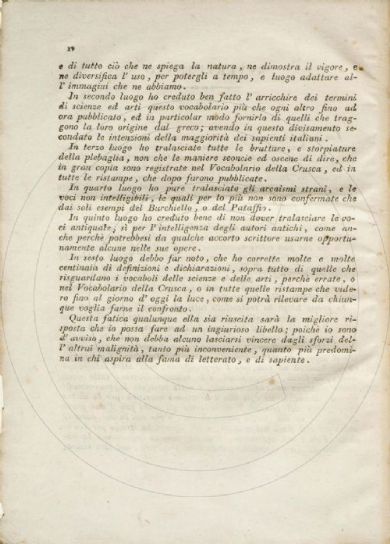 12
e di tutto ciò che ne spiega la natura, ne dimostra il vigore, e
ne diversifica l' uso, per potergli a tempo, e luogo adattare al-
l' immagini che ne abbiamo.
In secondo luogo ho creduto ben fatto l' arricchire dei termini
di scienze ed arti questo vocabolario più che ogni altro fino ad
ora pubblicato, ed in particolar modo fornirlo di quelli che trag-
gono la loro origine dal greco; avendo in questo divisamento se-
condato le intenzioni della maggiorità dei sapienti italiani.
In terzo luogo ho tralasciate tutte le brutture, e storpiature
della plebaglia, non che le maniere sconcie ed oscene di dire, che
in gran copia sono registrate nel Vocabolario della Crusca, ed in
tutte le ristampe, che dopo furono pubblicate.
In quarto luogo ho pure tralasciato gli arcaismi strani, e le
voci non intelligibili, le quali per lo più non sono confermate che
dai soli esempi del Burchiello, o del Pataffio.
In quinto luogo ho creduto bene di non dover tralasciare le vo-
ci antiquate, sì per l' intelligenza degli autori antichi, come an-
che perchè potrebbesi da qualche accorto scrittore usarne opportu-
namente alcune nelle sue opere.
In sesto luogo debbo far noto, che ho corrette molte e molte
centinaia di definizioni e dichiarazioni, sopra tutto di quelle che
risguardano i vocaboli delle scienze e delle arti, perchè errate, o
nel Vocabolario della Crusca, o in tutte quelle ristampe che vide-
ro fino al giorno d' oggi la luce, come si potrà rilevare da chiun-
que voglia farne il confronto.
Questa fatica qualunque ella sia riuscita sarà la migliore ri-
sposta che io possa fare ad un ingiurioso libello; poichè io sono
d' avviso, che non debba alcuno lasciarsi vincere dagli sforzi del-
l' altrui malignità, tanto più inconveniente, quanto più predomi-
na in chi aspira alla fama di letterato, e di sapiente.